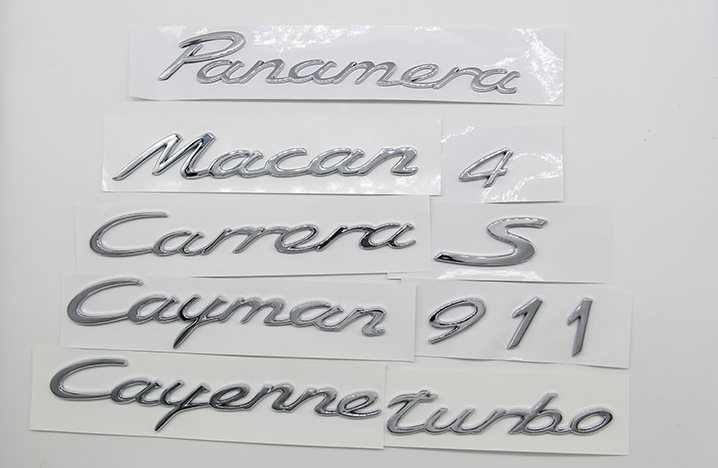 Panamera
Macan 4
Carrera S
Cayman 911
Cayenne turbo